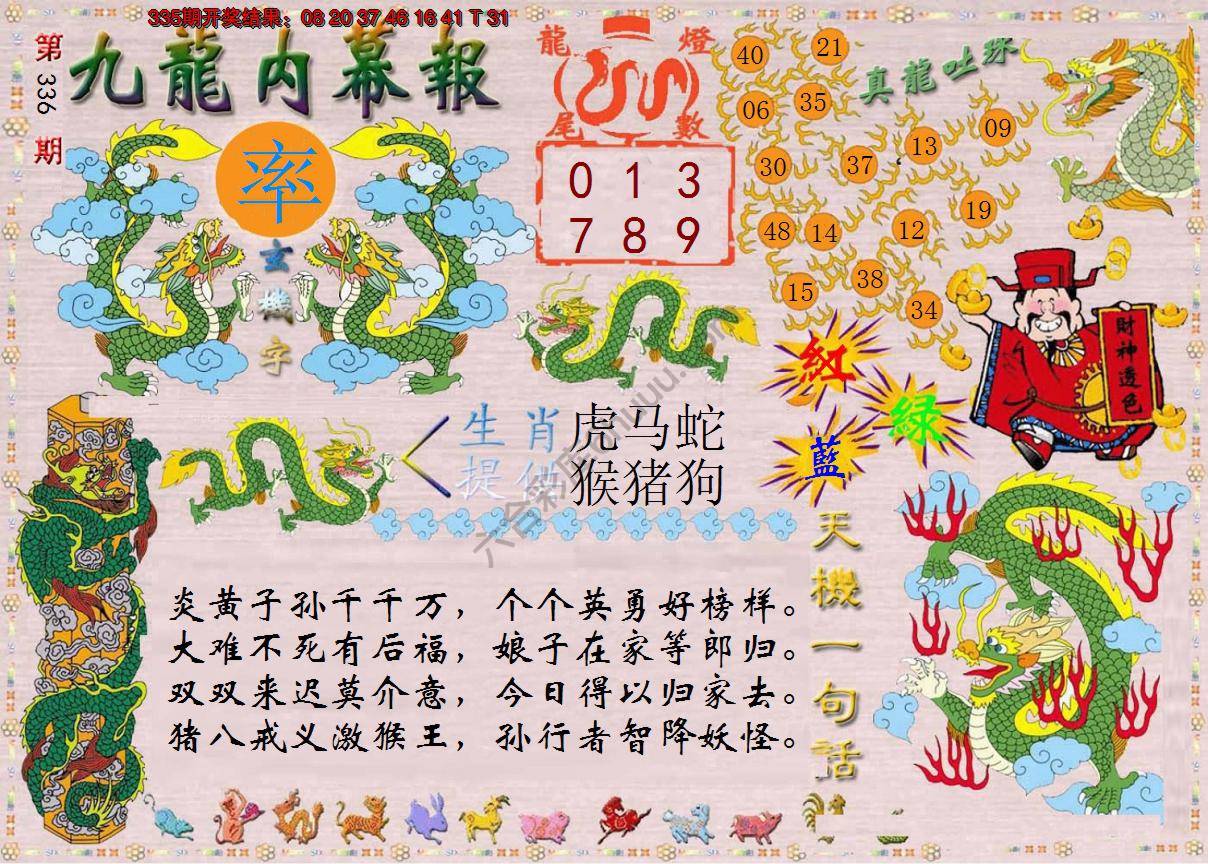 335期开奖结果：08 20 37 46 16 41 T 31
第336期
九龍内幕報
率
玄機字
龍燈尾數
0 1 3
7 8 9
真龍吐珠
40 21
06 35
13 09
30 37
48 14 12 19
15 38 34
財神透色
紅
綠
藍
生肖 虎马蛇
提供 猴猪狗
天機一句話
炎黄子孙千千万，个个英勇好榜样。
大难不死有后福，娘子在家等郎归。
双双来迟莫介意，今日得以归家去。
猪八戒义激猴王，孙行者智降妖怪。